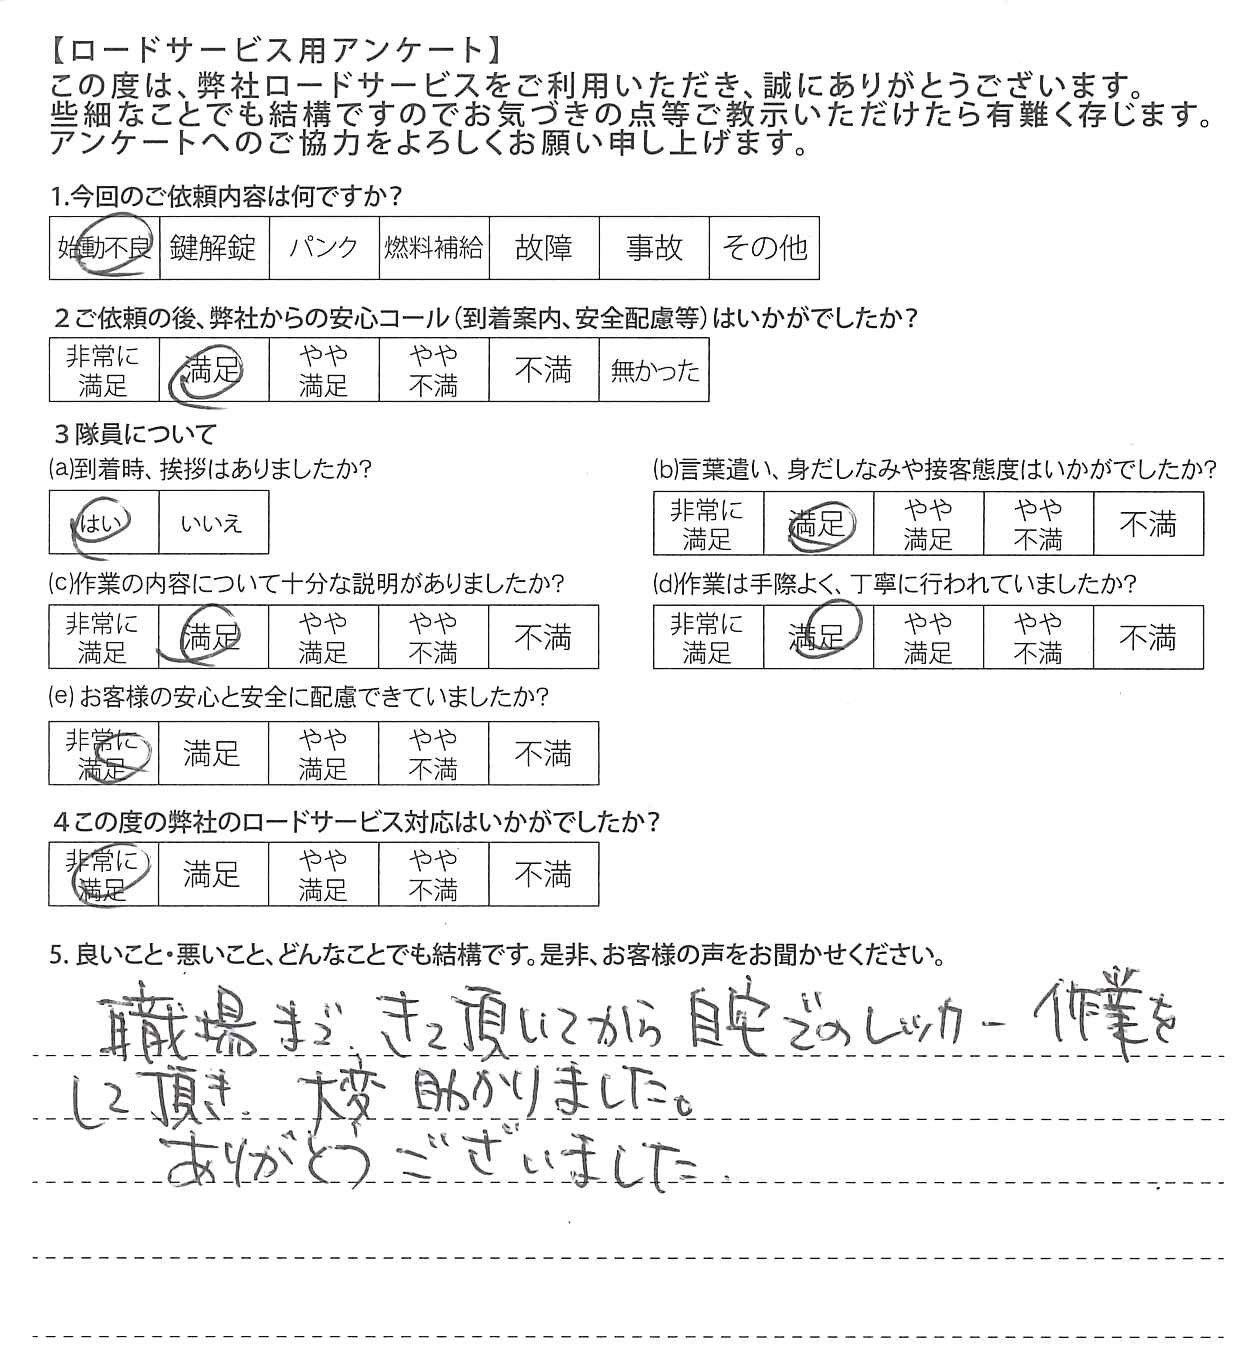 【ロードサービス用アンケート】
この度は、弊社ロードサービスをご利用いただき、誠にありがとうございます。
些細なことでも結構ですのでお気づきの点等ご教示いただけたら有難く存じます。
アンケートへのご協力をよろしくお願い申し上げます。
1.今回のご依頼内容は何ですか?
始動不良 鍵解錠 パンク 燃料補給 故障 事故 その他
2ご依頼の後、弊社からの安心コール(到着案内、安全配慮等)はいかがでしたか?
非常に満足 満足 やや満足 やや不満 不満 無かった
3隊員について
(a)到着時、挨拶はありましたか?
はい いいえ
(b)言葉遣い、身だしなみや接客態度はいかがでしたか?
非常に満足 満足 やや満足 やや不満 不満
(c)作業の内容について十分な説明がありましたか?
非常に満足 満足 やや満足 やや不満 不満
(d)作業は手際よく、丁寧に行われていましたか?
非常に満足 満足 やや満足 やや不満 不満
(e)お客様の安心と安全に配慮できていましたか?
非常に満足 満足 やや満足 やや不満 不満
4この度の弊社のロードサービス対応はいかがでしたか?
非常に満足 満足 やや満足 やや不満 不満
5. 良いこと・悪いこと、どんなことでも結構です。是非、お客様の声をお聞かせください。
職場まで、きて頂いてから自宅でのレッカー作業を
して頂き、大変助かりました。
ありがとうございました.